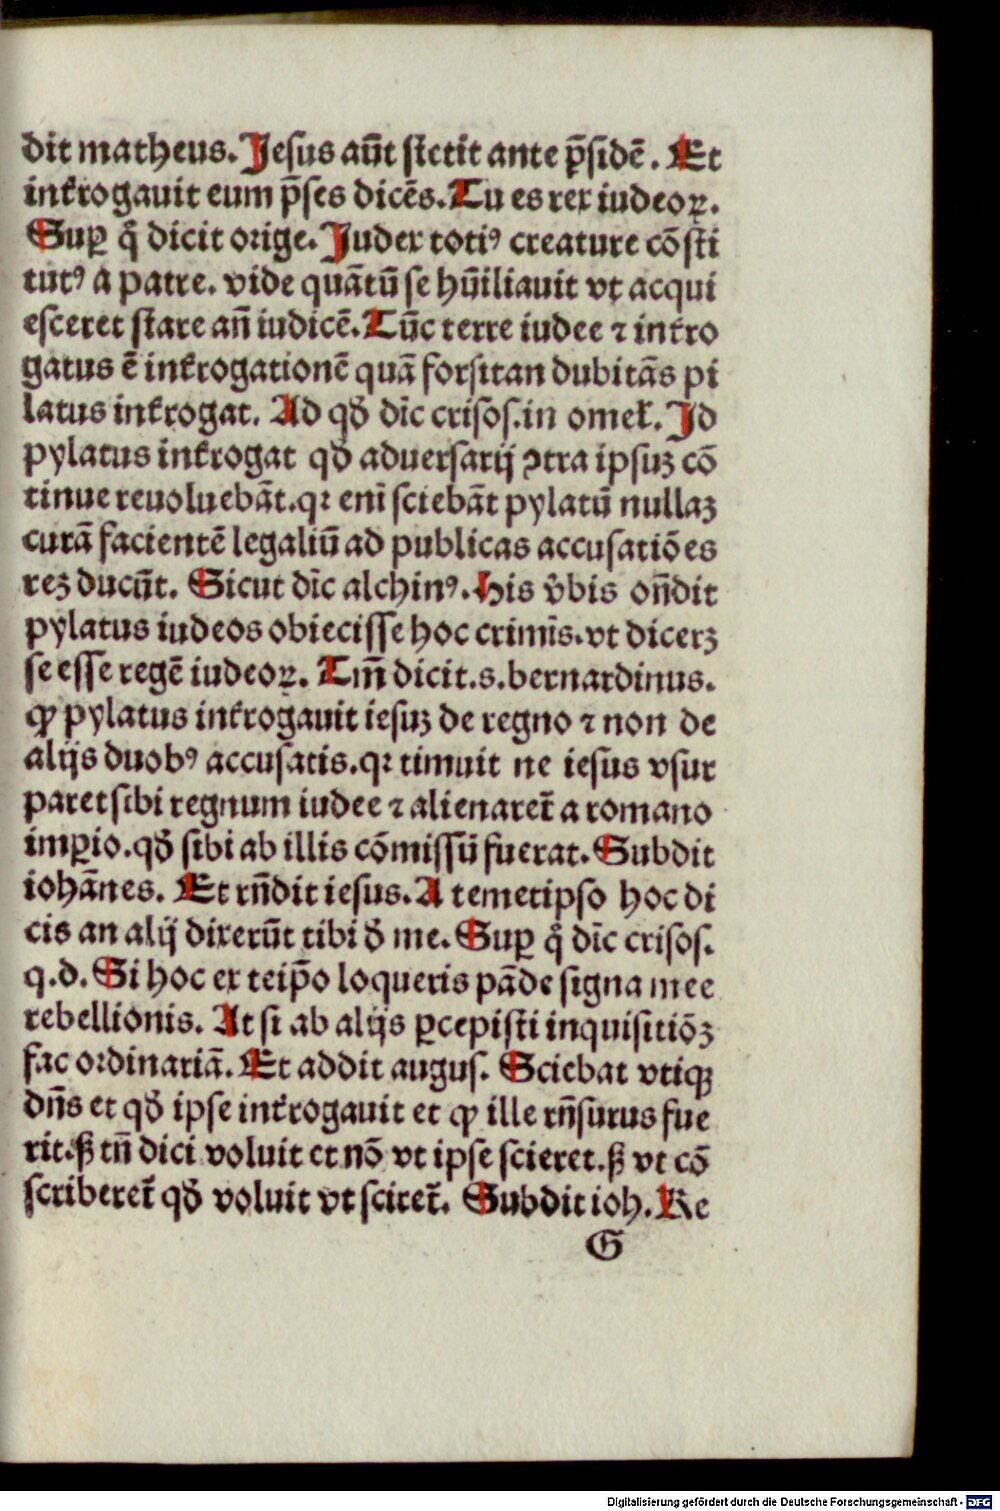 dit matheus. Jesus aūt stetit ante p̄sidē. Et
int̄rogauit eum p̄ses dicēs. Tu es rex iudeoꝝ.
Suꝑ q̄ dicit orige. Judex totiꝰ creature cōsti
tutꝰ a patre. vide quātū se hūiliauit vt acqui
esceret stare an̄ iudicē. Tūc terre iudee ⁊ int̄ro
gatus ē int̄rogationē quā forsitan dubitās pi
latus int̄rogat. Ad qđ dīc crisos. in omeł. Id
pylatus int̄rogat qđ aduersarij ꝯtra ipsuꝫ cō
tinue reuoluebāt. qꝛ enī sciebāt pylatū nullaꝫ
curā facientē legaliū ad publicas accusatiōes
reꝫ ducūt. Sicut dīc alchinꝰ. His v̄bis on̄dit
pylatus iudeos obiecisse hoc crimīs. vt dicerꝫ
se esse regē iudeoꝝ. Tm̄ dicit. s. bernardinus.
ꝙ pylatus int̄rogauit iesuꝫ de regno ⁊ non de
alijs duobꝰ accusatis. qꝛ timuit ne iesus vsur
paret sibi regnum iudee ⁊ alienaret̄ a romano
imꝑio. qđ sibi ab illis cōmissū fuerat. Subdit
iohānes. Et rn̄dit iesus. A temetipso hoc di
cis an alij dixerūt tibi đ me. Suꝑ q̄ dīc crisos.
q. d. Si hoc ex teip̄o loqueris pāde signa mee
rebellionis. At si ab alijs ꝑcepisti inquisitiōꝫ
fac ordinariā. Et addit augus. Sciebat vtiqꝫ
dn̄s et qđ ipse int̄rogauit et ꝙ ille rn̄surus fue
rit. ꝭs tn̄ dici voluit et nō vt ipse sciret. ꝭs vt cō
scriberet̄ qđ voluit vt sciret̄. Subdit ioh. Re
G
Digitalisierung gefördert durch die Deutsche Forschungsgemeinschaft - DFG